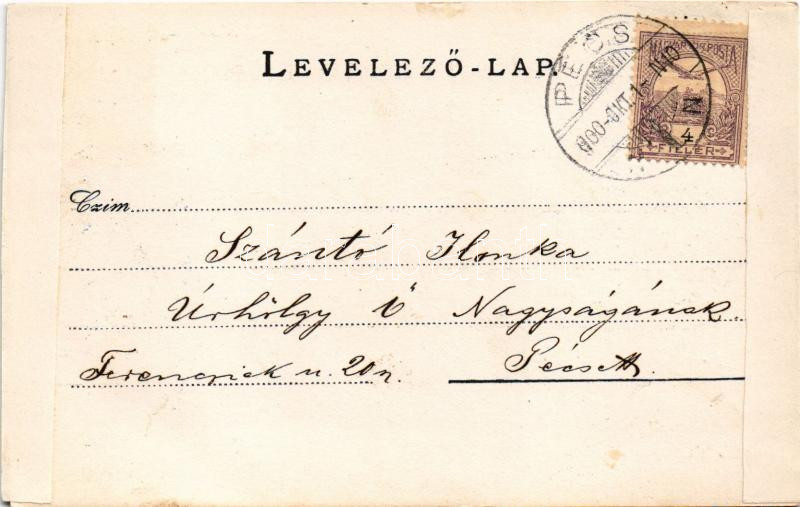 LEVELEZŐ-LAP.
PÉCS
900-OKT.1-
MAGYAR KIR. POSTA
4
FILLÉR
Czim
Szántó Ilonka
Úrhölgy Ő Nagyságának
Ferencziek u. 20 n. Pécsett